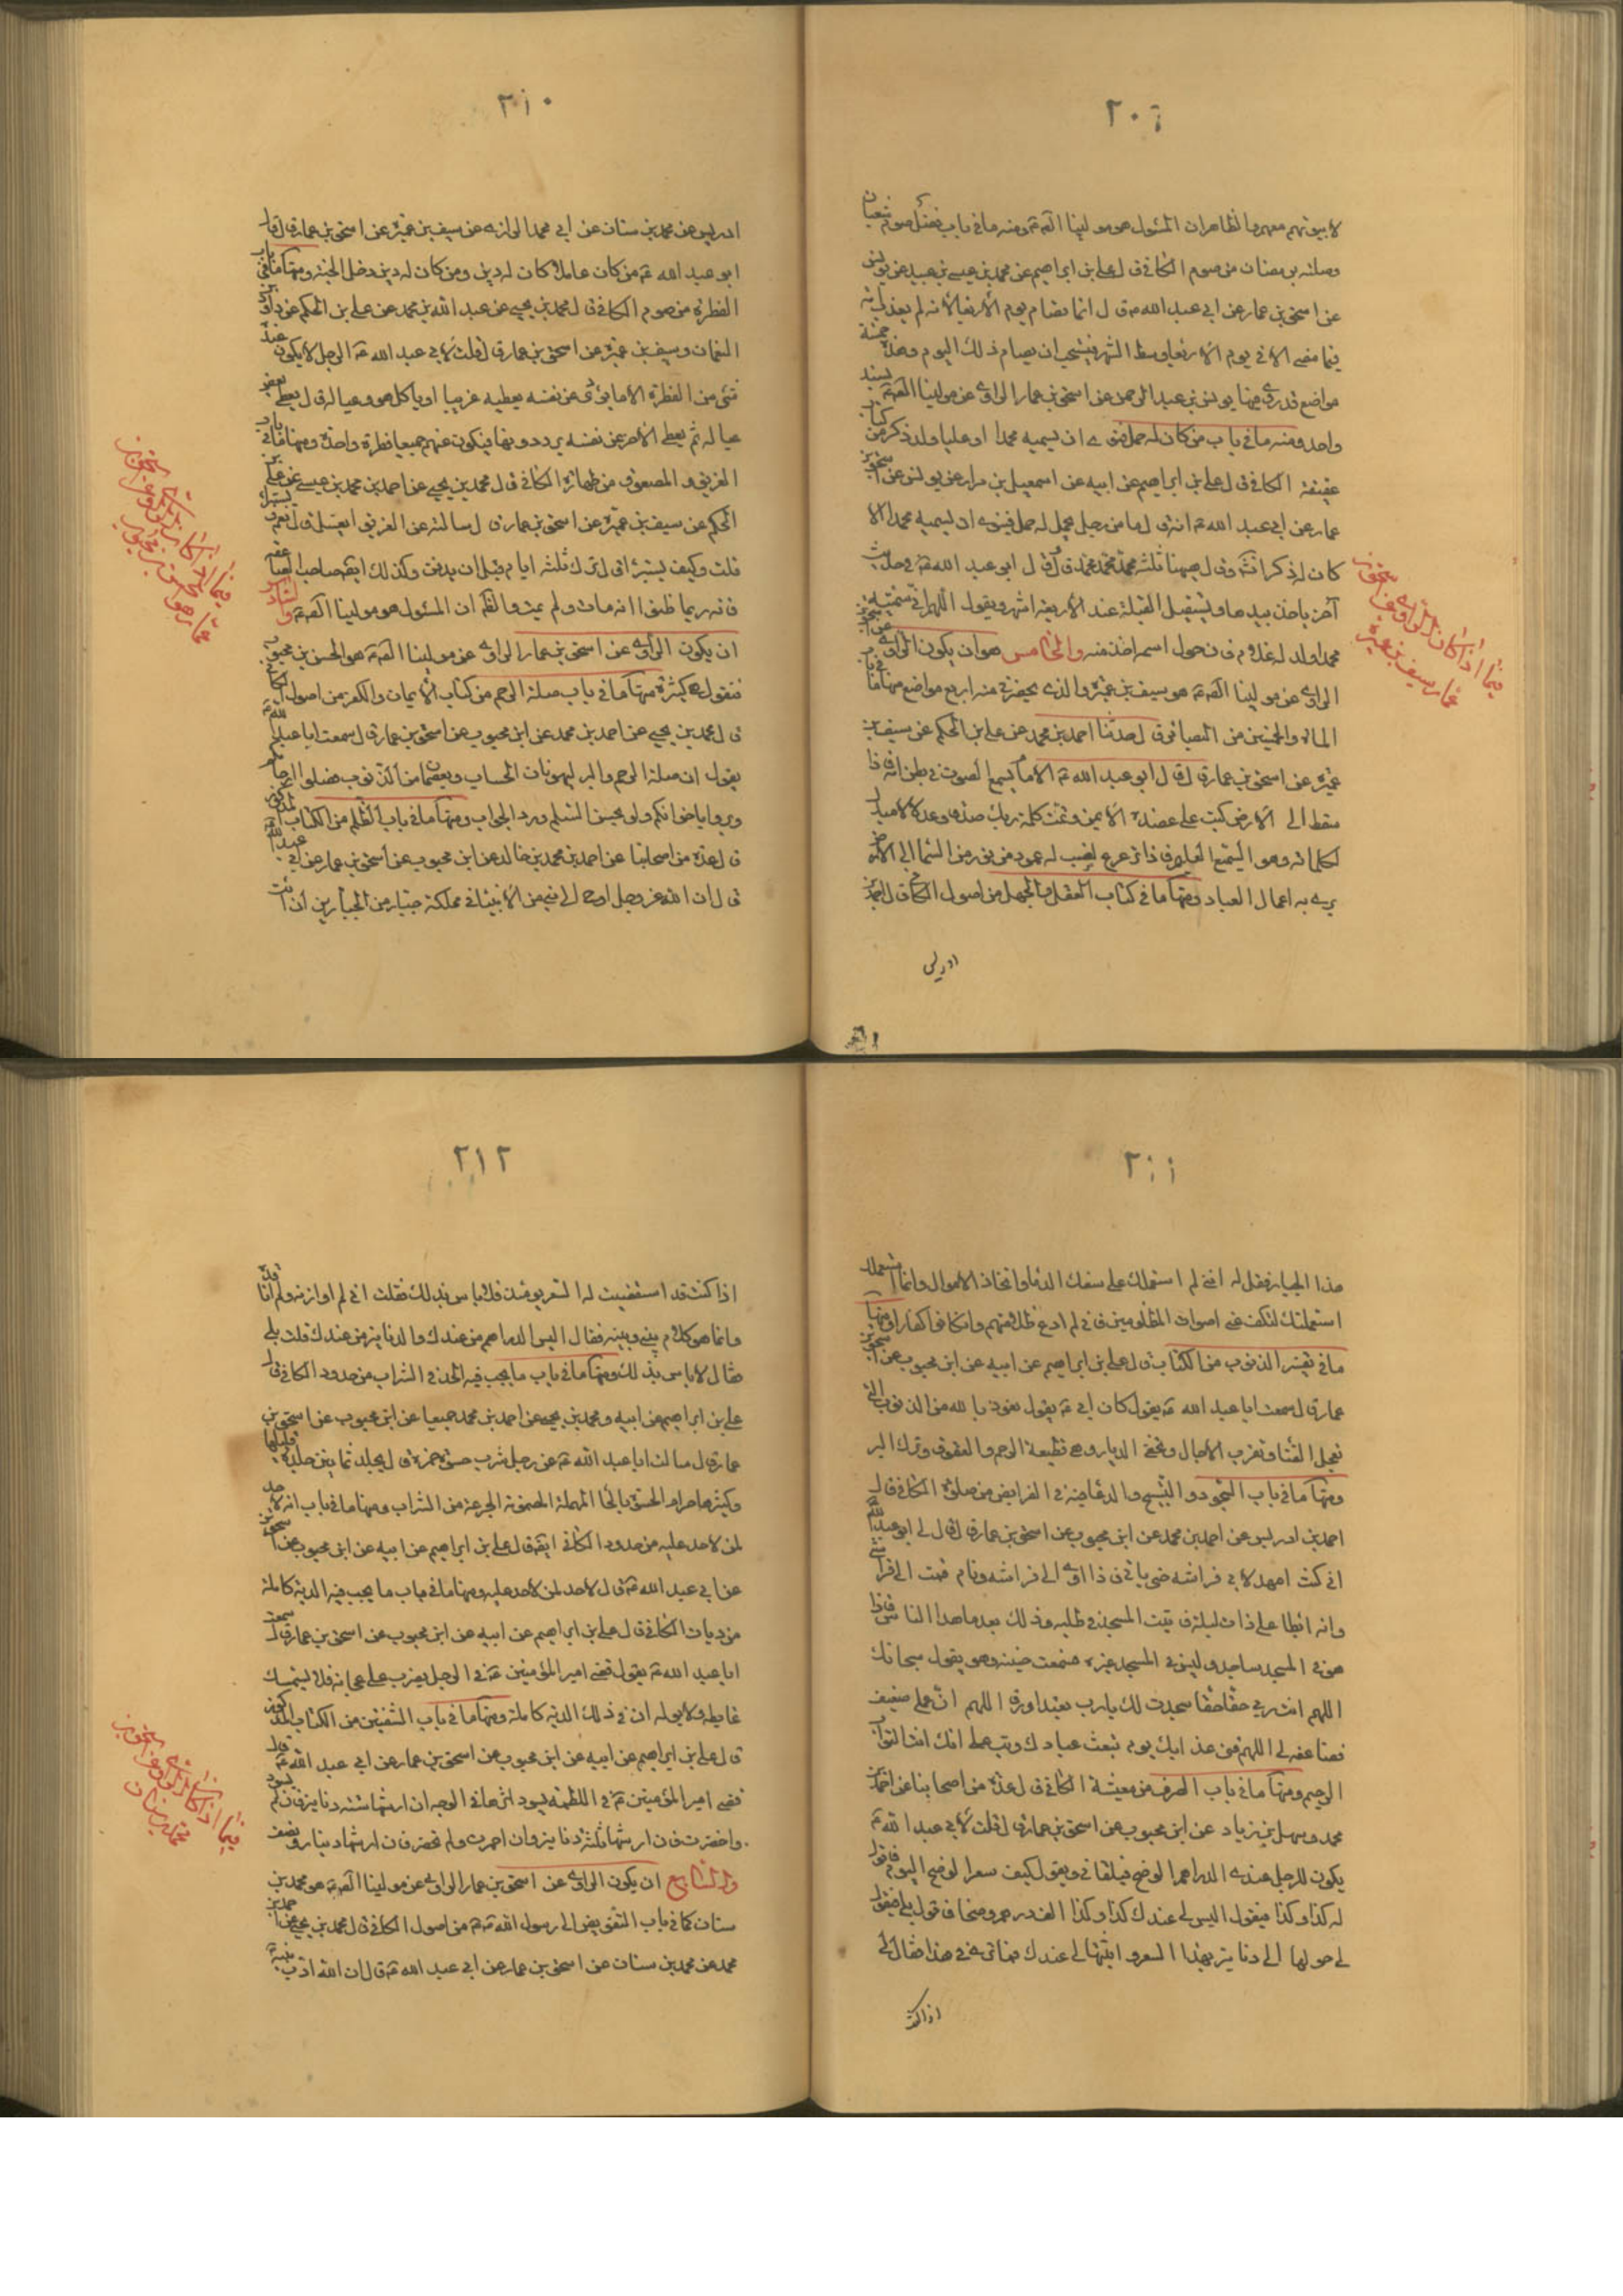 ٢٠٩
لا بينهم معهم والظاهر ان المسئول هو مولينا الصّ مّ ومنه ما في باب فضل صوم شعبان
وصلته برمضان من صوم الكافي ق ل علي بن ابراهيم عن محمد بن عيسى بن عبيد عن يونس
عن اسحق بن عمار عن ابي عبد الله مّ ق ل انما يصام يوم الأربعا لأنه لم يعذب امة
فيما مضى الا في يوم الأربعا وسط الشهر فيستحب ان يصام ذلك اليوم وهذه خمسة
مواضع قد روى فيها يونس بن عبد الرحمن عن اسحق بن عمار الراوي عن مولينا الصّ مّ بسند
واحد ومنه ما في باب من كان له حمل فنوى ان يسميه محمدا او عليا ولد ذكر من كتاب
عقيقة الكافي ق ل علي بن ابراهيم عن ابيه عن اسمعيل بن مرار عن يونس عن اسحق بن
عمار عن ابي عبد الله مّ انه ق ل ما من رجل يحمل له حمل فينوى ان يسميه محمدا الا
كان له ذكر انشّه وق ل ههنا ثلثة محمد محمد محمد ق ل وق ل ابو عبد الله مّ في حديث
آخر ياخذ بيدها ويستقبل القبلة عند الأربعة اشهر ويقول اللهم اني سميته
محمدا ولد له غلام فان حول اسمه اخذ منه والخامس هو ان يكون الراوي عن اسحق بن عمار
الراوي عن مولينا الصّ مّ هو سيف بن عميرة والذي يحضرني منه اربع مواضع منها ما في باب
المائة والخمسين من البصائر ق ل حدثنا احمد بن محمد عن علي بن الحكم عن سيف بن
عميرة عن اسحق بن عمار ق ل ق ل ابو عبد الله مّ الامام يسمع الصوت في بطن امه فاذا
سقط الى الأرض كتب على عضده الأيمن وتمت كلمة ربك صدقا وعدلا لا مبدل
لكلماته وهو السميع العليم فاذا ترعرع نصب له عمود من نور من السماء الى الأرض
يرى به اعمال العباد ومنها ما في كتاب العقل والجهل من اصول الكافي ق ل احمد بن
ادريس
فيما اذا كان الراوي عن اسحق بن
عمار سيف بن عميرة
٢١٠
ادريس عن محمد بن سنان عن ابي محمد الرازي عن سيف بن عميرة عن اسحق بن عمار ق ل ق ل
ابو عبد الله مّ من كان عاقلا كان له دين ومن كان له دين دخل الجنة ومنها ما في باب
الفطرة من صوم الكافي ق ل محمد بن يحيى عن عبد الله بن محمد عن علي بن الحكم عن داود بن
النعمان وسيف بن عميرة عن اسحق بن عمار ق ل قلت لابي عبد الله مّ الرجل لا يكون عنده
شئ من الفطرة الا ما يؤدى عن نفسه يعطيه غريبا او ياكل هو وعياله ق ل يعطي بعض
عياله ثم يعطي الآخر عن نفسه يرددونها فيكون عنهم جميعا فطرة واحدة ومنها ما في باب
الغريق والمصعوق من طهارة الكافي ق ل محمد بن يحيى عن احمد بن محمد بن عيسى عن علي بن
الحكم عن سيف بن عميرة عن اسحق بن عمار ق ل سالته عن الغريق ايغسل ق ل نعم ويستبرأ
قلت وكيف يستبرأ ق ل يترك ثلثة ايام قبل ان يدفن وكذلك ايضا صاحب الصاعقة
فانه ربما ظنوا انه مات ولم يمت والظّ ان المسئول هو مولينا الصّ مّ والسادس
ان يكون الراوي عن اسحق بن عمار الراوي عن مولينا الصّ مّ هو الحسن بن محبوب
فنقول هي كثيرة منها ما في باب صلة الرحم من كتاب الأيمان والكفر من اصول الكافي
ق ل محمد بن يحيى عن احمد بن محمد عن ابن محبوب عن اسحق بن عمار ق ل سمعت ابا عبد الله مّ
يقول ان صلة الرحم والبر ليهونان الحساب ويعصمان من الذنوب فصلوا ارحامكم
وبروا باخوانكم ولو بحسن السلم ورد الجواب ومنها ما في باب الظلم من الكتاب المذكور
ق ل عدة من اصحابنا عن احمد بن محمد بن خالد عن ابن محبوب عن اسحق بن عمار عن ابي عبد الله مّ
ق ل ان الله عز وجل اوحى الى نبي من الأنبياء في مملكة جبار من الجبارين ان ائت
فيما اذا كان الراوي عن اسحق بن
عمار هو الحسن بن محبوب
٢١١
هذا الجبار فقل له انني لم استعملك على سفك الدماء واتخاذ الاموال وانما استعملتك
استعملتك لتكف عني اصوات المظلومين فاني لم ادع ظلامتهم وان كانوا كفارا ومنها
ما في تفسير الذنوب من الكتاب ق ل علي بن ابراهيم عن ابيه عن ابن محبوب عن اسحق بن
عمار ق ل سمعت ابا عبد الله مّ يقول كان ابي مّ يقول نعوذ بالله من الذنوب التي
تعجل الفناء وتقرب الآجال وتخلي الديار وهي قطيعة الرحم والعقوق وترك البر
ومنها ما في باب السجود والتسبيح والدعا فيه في الفرايض من صلوة الكافي ق ل
احمد بن ادريس عن احمد بن محمد عن ابن محبوب عن اسحق بن عمار ق ل ق ل لي ابو عبد الله مّ
اني كنت امهد لابي فراشه حتى ياتي فاذا اوى الى فراشه ونام قمت الى فراشي
وانه ابطا علي ذات ليلة فاتيت المسجد في طلبه وذلك بعد ما هدا الناس فاذا
هو في المسجد ساجد وليس في المسجد غيره فسمعت حنينه وهو يقول سبحانك
اللهم انت ربي حقا حقا سجدت لك يا رب تعبدا ورقا اللهم ان عملي ضعيف
فضاعفه لي اللهم قني عذابك يوم تبعث عبادك وتب علي انك انت التواب
الرحيم ومنها ما في باب الصرف من معيشة الكافي ق ل عدة من اصحابنا عن احمد بن
محمد وسهل بن زياد عن ابن محبوب عن اسحق بن عمار ق ل قلت لابي عبد الله مّ
يكون للرجل عندي الدراهم الوضح فيلقاني ويقول كيف سعر الوضح اليوم فاقول
له كذا وكذا فيقول اليس لي عندك كذا وكذا الف درهم وضحا فاقول بلى فيقول
لي حولها الى دنانير بهذا السعر واثبتها لي عندك فما ترى في هذا فقال لي
اذا كنت
٢١٢
اذا كنت قد استقصيت له السعر يومئذ فلا باس بذلك فقلت اني لم اوازنه ولم اناقده
وانما هو كلام بيني وبينه فقال اليس الدراهم من عندك والدنانير من عندك قلت بلى
فقال لا باس بذلك ومنها ما في باب ما يجب فيه الحد في الشراب من حدود الكافي ق ل
علي بن ابراهيم عن ابيه ومحمد بن يحيى عن احمد بن محمد جميعا عن ابن محبوب عن اسحق بن
عمار ق ل سالت ابا عبد الله مّ عن رجل شرب حسوة خمر ق ل يجلد ثمانين جلدة قليلها
وكثيرها حرام الحسوة بالحا المهملة المضمومة الجرعة من الشراب ومنها ما في باب انه لا حد
لمن لا حد عليه من حدود الكافي ايضا ق ل علي بن ابراهيم عن ابيه عن ابن محبوب عن اسحق بن
عن ابي عبد الله مّ ق ل لا حد لمن لا حد عليه ومنها ما في باب ما يجب فيه الدية كاملة
من ديات الكافي ق ل علي بن ابراهيم عن ابيه عن ابن محبوب عن اسحق بن عمار ق ل سمعت
ابا عبد الله مّ يقول قضى امير المؤمنين مّ في الرجل يضرب على عجانه فلا يستمسك
غايطه ولا بوله ان في ذلك الدية كاملة ومنها ما في باب الشفتين من الكتاب المذكور
ق ل علي بن ابراهيم عن ابيه عن ابن محبوب عن اسحق بن عمار عن ابي عبد الله مّ ق ل
قضى امير المؤمنين مّ في اللطمة يسود اثرها في الوجه ان ارشها ستة دنانير فان لم يسود
واخضرت فان ارشها ثلثة دنانير فان احمرت ولم تخضر فان ارشها دينار ونصف
والسابع ان يكون الراوي عن اسحق بن عمار الراوي عن مولينا الصّ مّ هو محمد بن
سنان كما في باب التفويض الى رسول الله مّ من اصول الكافي ق ل محمد بن يحيى عن احمد بن
محمد عن محمد بن سنان عن اسحق بن عمار عن ابي عبد الله مّ ق ل ان الله ادب نبيه
فيما اذا كان الراوي عن اسحق بن
محمد بن سنان